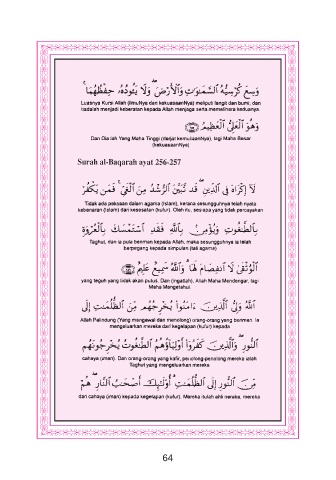 وَسِعَ كُرْسِيُّهُ السَّمَـٰوَٰتِ وَٱلْأَرْضَ ۖ وَلَا يَـُٔودُهُۥ حِفْظُهُمَا ۚ
Luasnya Kursi Allah (ilmuNya dan kekuasaanNya) meliputi langit dan bumi; dan
tiadalah menjadi keberatan kepada Allah menjaga serta memelihara keduanya.
وَهُوَ ٱلْعَلِىُّ ٱلْعَظِيمُ
Dan Dia lah Yang Maha Tinggi (darjat kemuliaanNya), lagi Maha Besar
(kekuasaanNya)
Surah al-Baqarah ayat 256-257
لَآ إِكْرَاهَ فِى ٱلدِّينِ ۖ قَد تَّبَيَّنَ ٱلرُّشْدُ مِنَ ٱلْغَىِّ ۚ فَمَن يَكْفُرْ
Tidak ada paksaan dalam agama (Islam), kerana sesungguhnya telah nyata
kebenaran (Islam) dari kesesatan (kufur). Oleh itu, sesiapa yang tidak percayakan
بِٱلطَّـٰغُوتِ وَيُؤْمِنۢ بِٱللَّهِ فَقَدِ ٱسْتَمْسَكَ بِٱلْعُرْوَةِ
Taghut, dan ia pula beriman kepada Allah, maka sesungguhnya ia telah
berpegang kepada simpulan (tali agama)
ٱلْوُثْقَىٰ لَا ٱنفِصَامَ لَهَا ۗ وَٱللَّهُ سَمِيعٌ عَلِيمٌ
yang teguh yang tidak akan putus. Dan (ingatlah), Allah Maha Mendengar, lagi
Maha Mengetahui.
ٱللَّهُ وَلِىُّ ٱلَّذِينَ ءَامَنُوا۟ يُخْرِجُهُم مِّنَ ٱلظُّلُمَـٰتِ إِلَى
Allah Pelindung (Yang mengawal dan menolong) orang-orang yang beriman. Ia
mengeluarkan mereka dari kegelapan (kufur) kepada
ٱلنُّورِ ۖ وَٱلَّذِينَ كَفَرُوٓا۟ أَوْلِيَآؤُهُمُ ٱلطَّـٰغُوتُ يُخْرِجُونَهُم
cahaya (iman). Dan orang-orang yang kafir, penolong-penolong mereka ialah
Taghut yang mengeluarkan mereka
مِّنَ ٱلنُّورِ إِلَى ٱلظُّلُمَـٰتِ ۗ أُو۟لَـٰٓئِكَ أَصْحَـٰبُ ٱلنَّارِ ۖ هُمْ
dari cahaya (iman) kepada kegelapan (kufur). Mereka itulah ahli neraka, mereka
64